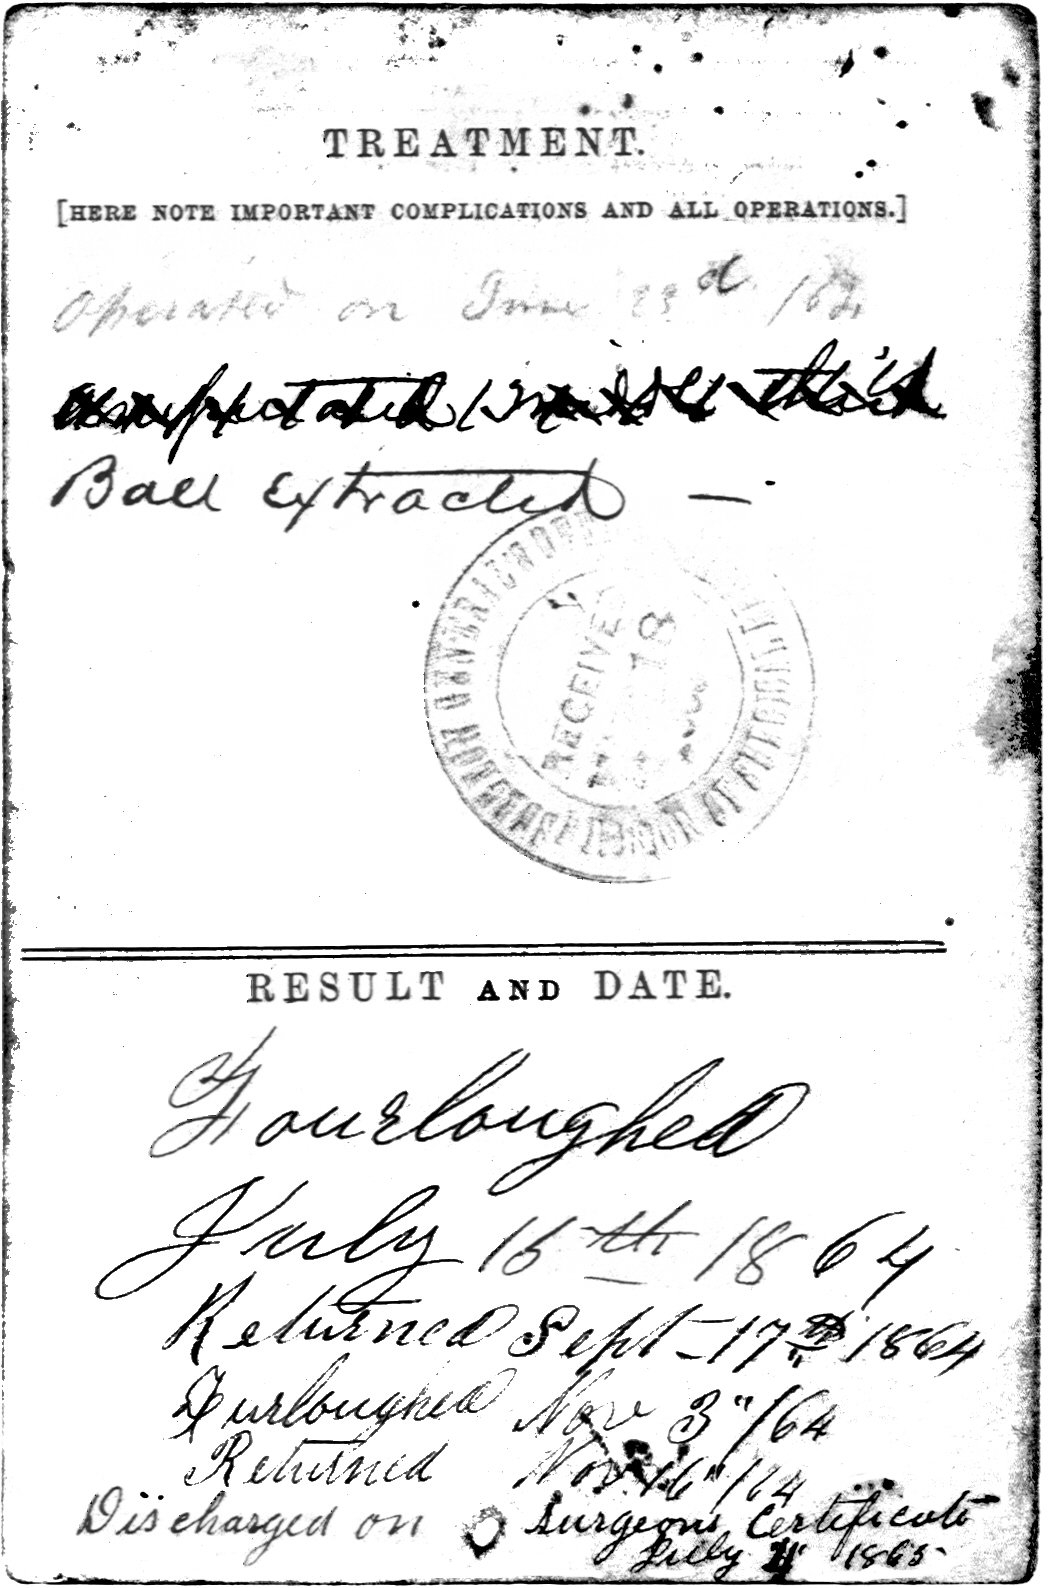 TREATMENT.
[HERE NOTE IMPORTANT COMPLICATIONS AND ALL OPERATIONS.]
Operated on June 23d /64
Amputated middle third
Ball Extracted —
RECEIVED
18
RESULT AND DATE.
Fourloughed
July 15th 1864
Returned Sept – 17th 1864
Furloughed Nov 3" /64
Returned Nov 16" /64
Discharged on Surgeons Certificate
July 1865